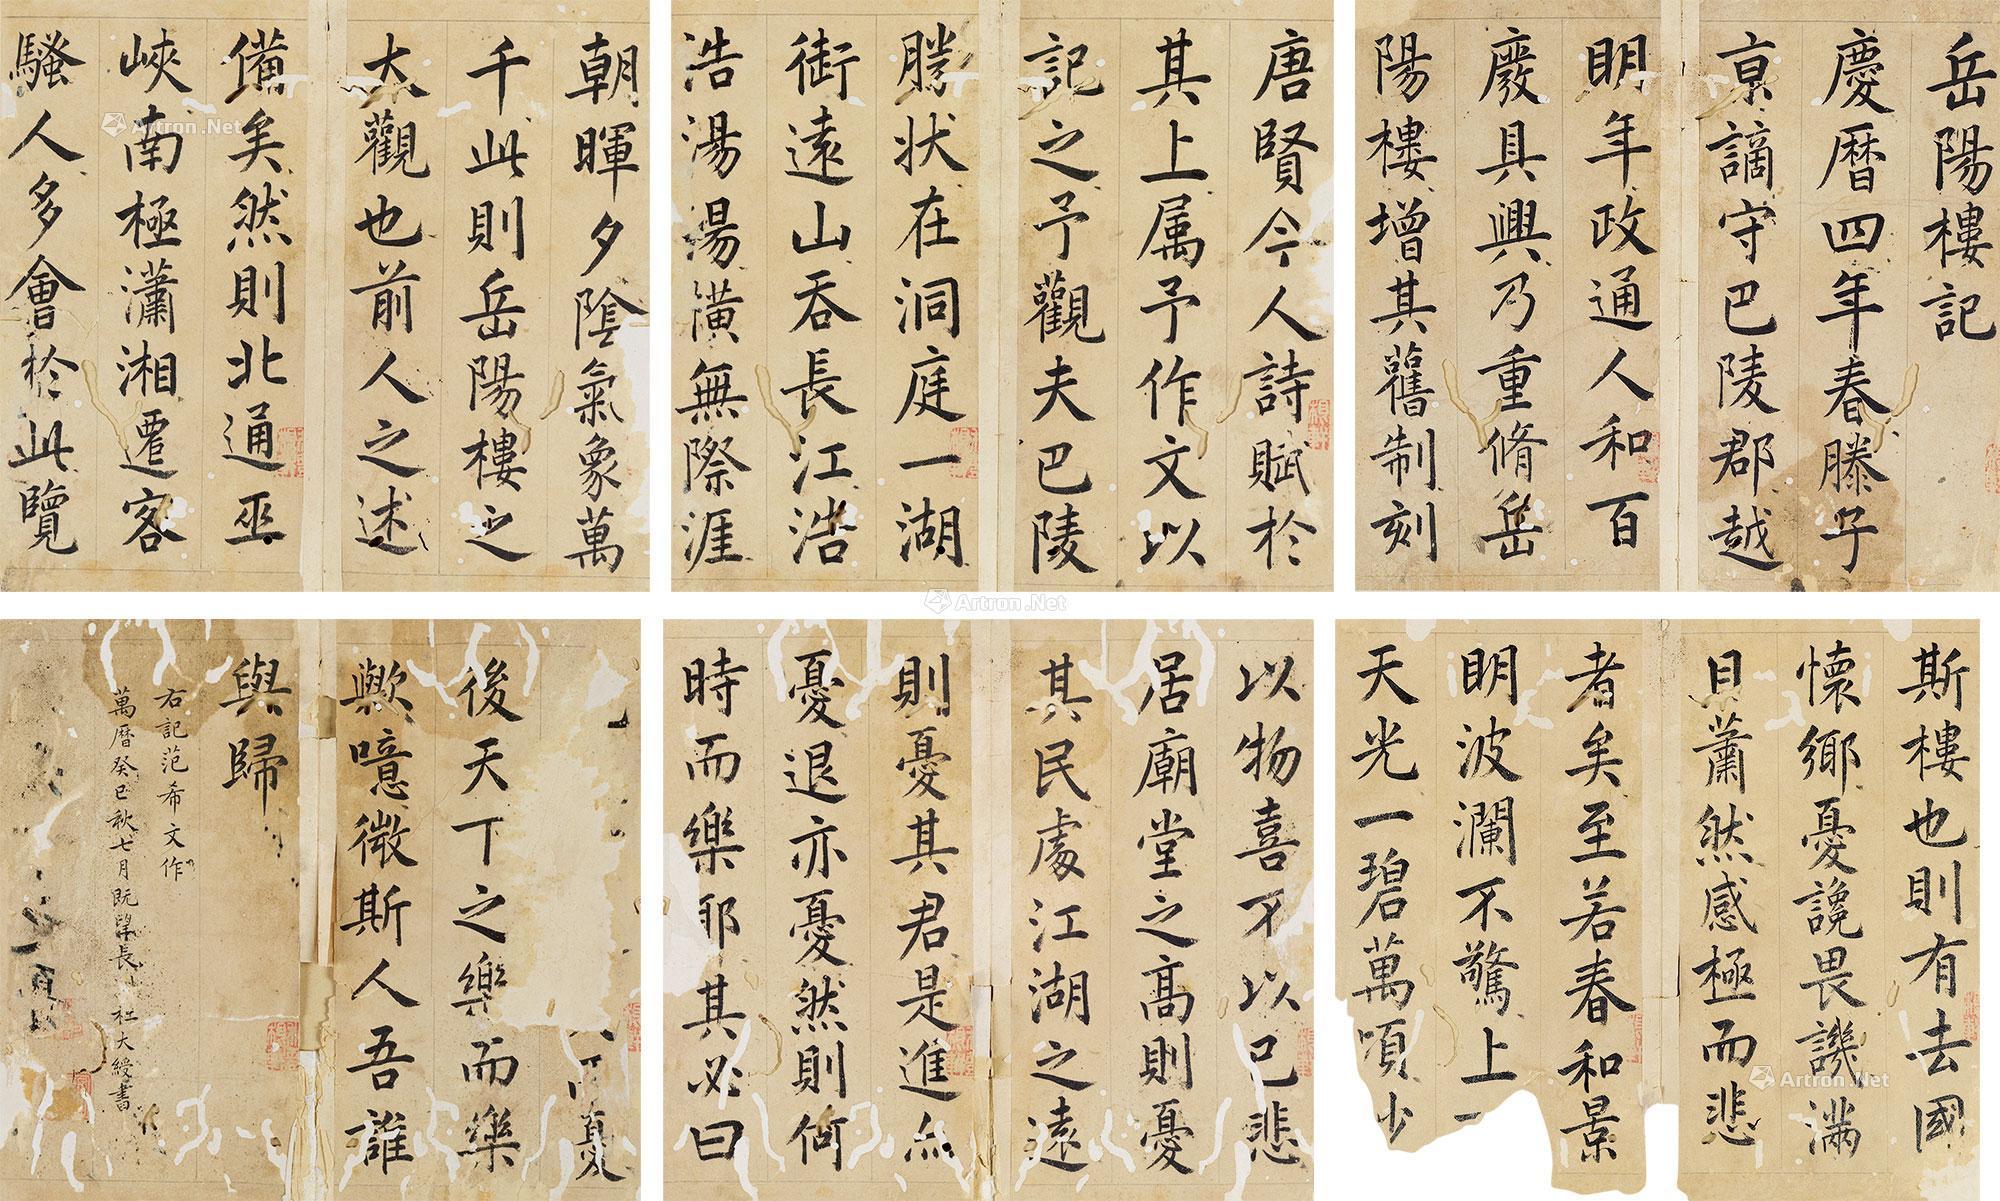 岳陽樓記
慶曆四年春滕子
京謫守巴陵郡越
明年政通人和百
廢具興乃重脩岳
陽樓增其舊制刻
唐賢今人詩賦於
其上属予作文以
記之予觀夫巴陵
勝状在洞庭一湖
銜遠山吞長江浩
浩湯湯橫無際涯
朝暉夕陰氣象萬
千此則岳陽樓之
大觀也前人之述
備矣然則北通巫
峽南極瀟湘遷客
騷人多會於此覽
斯樓也則有去國
懷鄉憂讒畏譏滿
目蕭然感極而悲
者矣至若春和景
明波瀾不驚上
天光一碧萬頃
以物喜不以己悲
居廟堂之高則憂
其民處江湖之遠
則憂其君是進亦
憂退亦憂然則何
時而樂耶其必曰
憂
後天下之樂而樂
歟噫微斯人吾誰
與歸
右記范希文作
萬曆癸巳秋七月既望長洲杜大綬書
Artron.Net
Artron.Net
Artron.Net